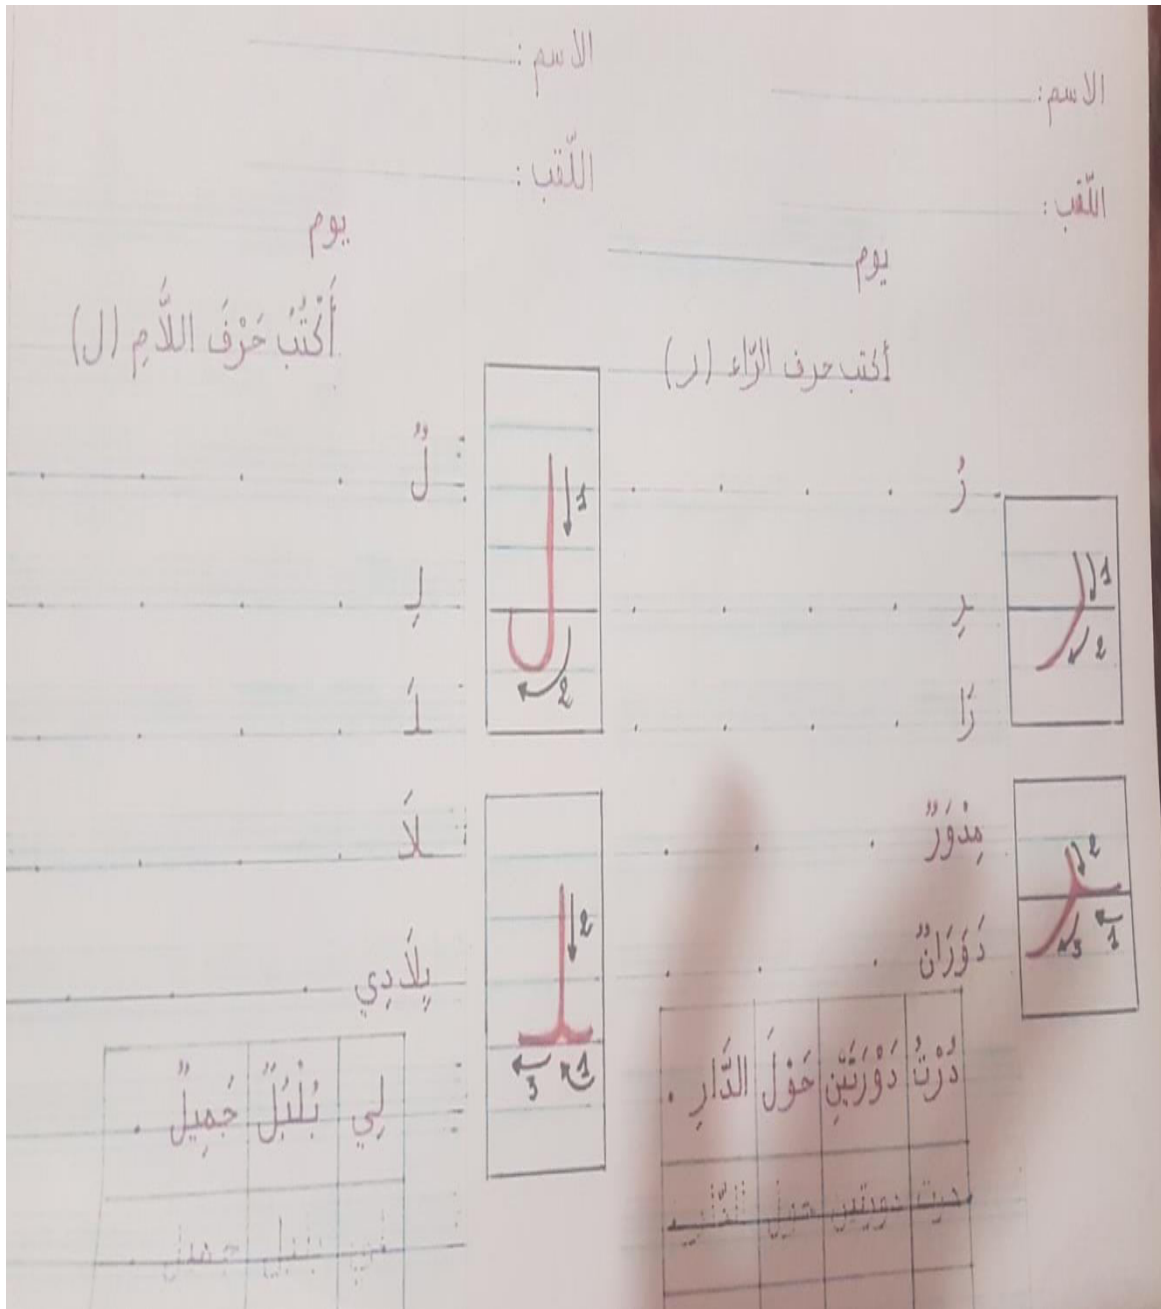 الاسم :
اللّقب :
يوم
أكتب حرف الرّاء (ر)
رُ
رِ
رَا
1
2
مِدْوَرٌ
دَوَرَانٌ
2
1
3
دُرْتُ دَوْرَتَيْنِ حَوْلَ الدَّارِ .
درت دورتين حول الدّار .
الاسم :
اللّقب :
يوم
أَكْتُبُ حَرْفَ اللاَّمِ (ل)
لٌ
لِ
لَ
لاَ
1
2
بِلاَدِي
2
1
3
لِي بُلْبُلٌ جَمِيلٌ .
لي بلبل جميل .